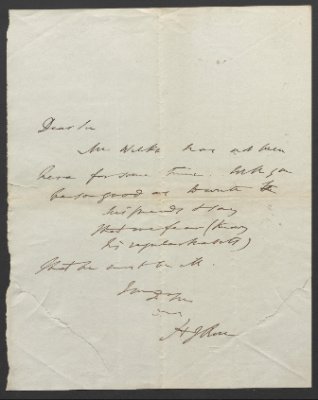 Dear Sir
Mr Wilks has not been
here for some time. Will you
be so good as to write to
his friends & say
that we fear (knowing
his regular habits)
that he must be ill.
Yours
HJRose